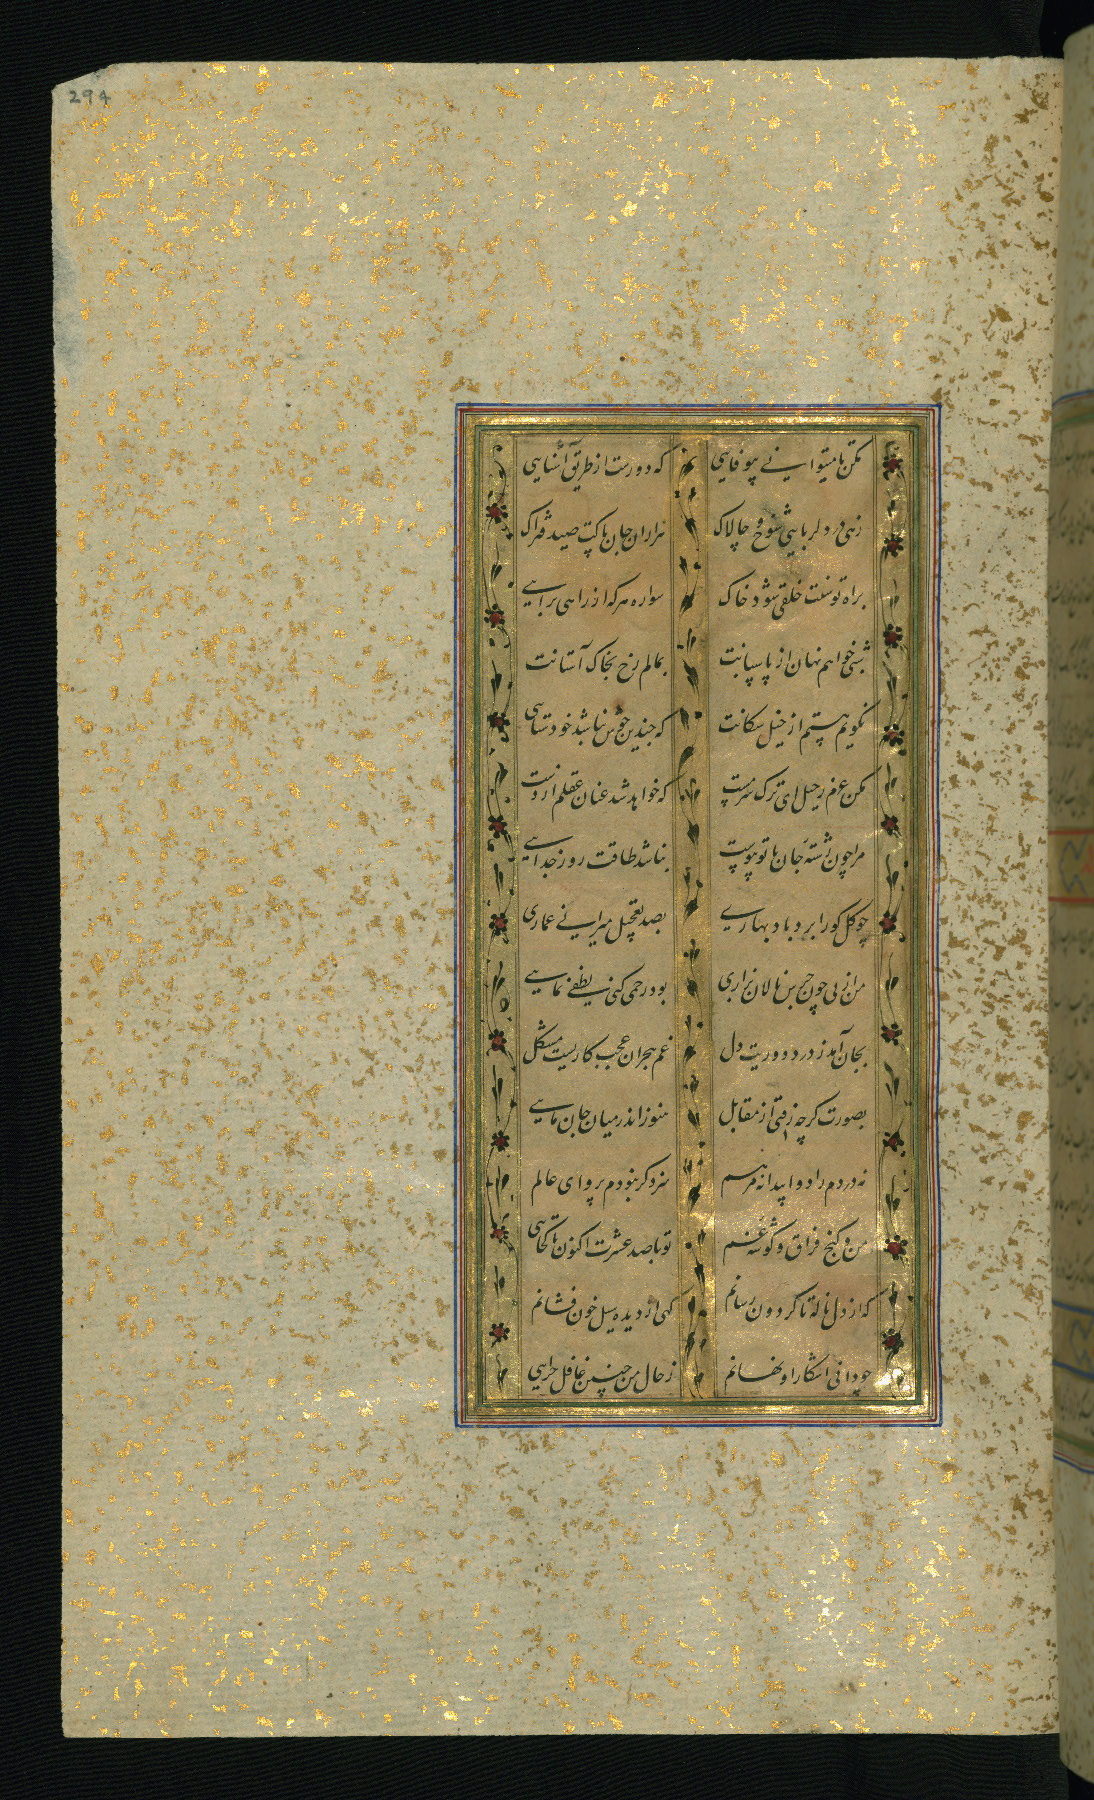 294
مکن تا میتوانی بیوفایی که دورست از طریق آشنایی
زهی در دلربایی شوخ و چالاک هزاران جان پاکت صید فتراک
براه توسنت خلقی شود خاک سواره هرکه از راهی برآیی
شبی خواهم نهان از پاسبانت بمالم رخ بخاک آستانت
نگویم هستم از خیل سگانت که چندین خوش نباشد خودستایی
مکن عزم رحیل ای ترک سرمست که خواهد شد عنان عقلم از دست
مرا چون رشتهٔ جان با تو پیوست نباشد طاقت روز جدایی
چو گل کو را برد باد بهاری بصد تعجیل میرانی عماری
من از پی چون جرس نالان بزاری بود رحمی کنی لطفی نمایی
بجان آمد ز درد دوریت دل غم هجران عجب کاریست مشکل
بصورت گرچه رفتی از مقابل هنوز اندر میان جان مایی
نه دردم را دوا پیدا نه مرهم سزد گر نبودم پروای عالم
من و کنج فراق و گوشهٔ غم تو با صد عشرت اکنون تا کجایی
که از دل ناله تا گردون رسانم گهی از دیده سیل خون فشانم
چو دانی آشکارا و نهانم ز حال من چنین غافل چرایی